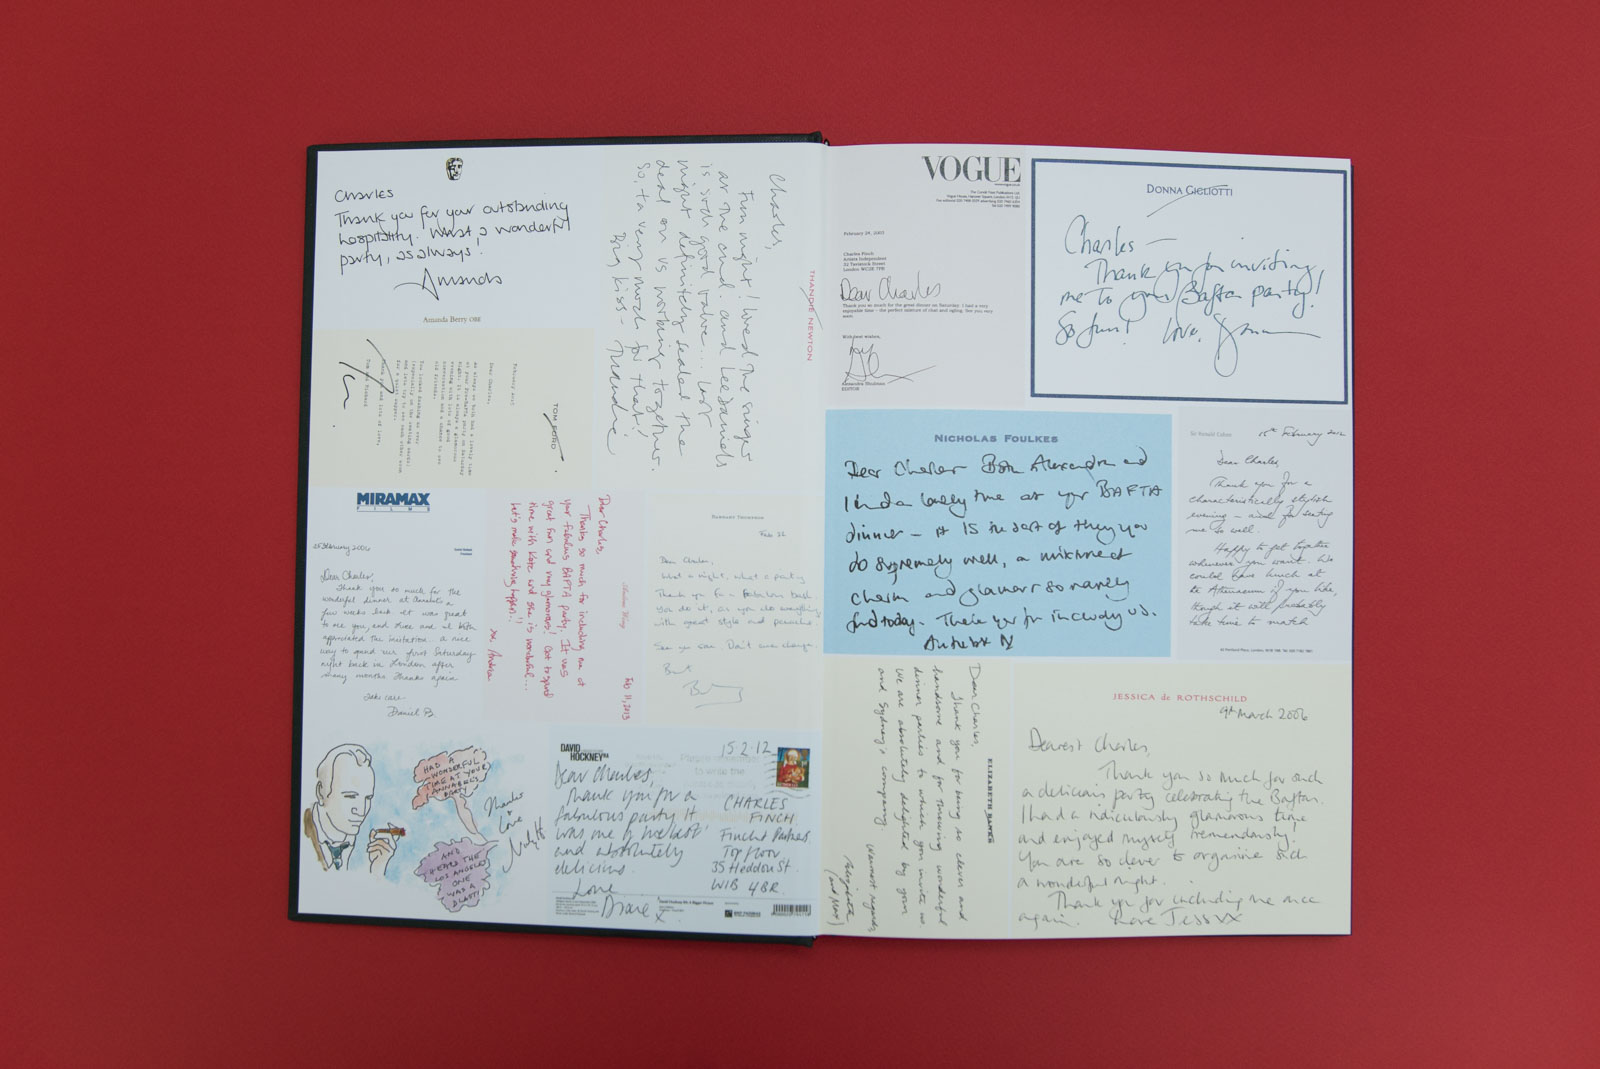 Charles
Thank you for your outstanding
hospitality. What a wonderful
party, as always!
Amanda
Amanda Berry OBE
THANDIE NEWTON
Charles,
Fun night! Loved the singer
at the end. and Lee Daniels
is such good value... our
night definitely sealed the
deal on us working together.
So, ta very much for that!
Big kiss - Thandie
TOM FORD
Dear Charles,
MIRAMAX
FILMS
25 February 2004
Dear Charles,
Thank you so much for the
wonderful dinner at Annabel's a
few weeks back. It was great
to see you, and Luce and I both
appreciated the invitation. a nice
way to spend our first Saturday
night back in London after
many months. Thanks again
Take care
Daniel B.
Feb 11, 2013
Dear Charles,
Thanks so much for including me at
your fabulous BAFTA party. It was
great fun and very glamorous! Got to spend
time with Kate and she is wonderful...
Let's make something happen..!
Feb 22
Dear Charles,
What a night, what a party
Thank you for a fabulous bash.
You do it, as you do everything,
with great style and panache.
See you soon. Don't ever change.
HAD A
WONDERFUL
TIME AT YOUR
ANNABEL'S
PARTY
AND I
HEARD THE
LOS ANGELES
ONE
WAS A
BLAST!
Thanks
+
Love
DAVID
HOCKNEY RA
15.2.12
Dear Charles,
Thank you for a
fabulous party. It
was one of the best
and absolutely
delicious.
Love
Diane x
CHARLES
FINCH
Finch & Partners
Top Floor
35 Heddon St.
W1B 4BR.
VOGUE
February 24, 2003
Charles Finch
Artists Independent
32 Tavistock Street
London WC2E 7PB
Dear Charles
Thank you so much for the great dinner on Saturday. I had a very
enjoyable time – the perfect mixture of chat and ogling. See you very
soon
With best wishes,
Alexandra Shulman
EDITOR
DONNA GIGLIOTTI
Charles —
Thank you for inviting
me to your Bafta party!
So fun! Love,
NICHOLAS FOULKES
Dear Charles Both Alexandra and
I had a lovely time at your BAFTA
dinner – it is the sort of thing you
do supremely well, a mixture of
charm and glamour so rarely
found today. Thank you for including us.
Sir Ronald Cohen
15th February 2012
Dear Charles,
Thank you for a
characteristically stylish
evening – and for seating
me so well.
Happy to get together
whenever you want. We
could have lunch at
the Athenaeum if you like,
though it will probably
take time to match
ELIZABETH BANKS
Dear Charles,
Thank you for being so clever and
handsome and for throwing wonderful
dinner parties to which you invite us.
We are absolutely delighted by your
and Sydney's company
Warmest regards,
Elizabeth
(and Max)
JESSICA de ROTHSCHILD
9th March 2006
Dearest Charles,
Thank you so much for such
a delicious party celebrating the Baftas.
I had a ridiculously glamorous time
and enjoyed myself tremendously!
You are so clever to organise such
a wonderful night.
Thank you for including me once
again. Love Jess xx